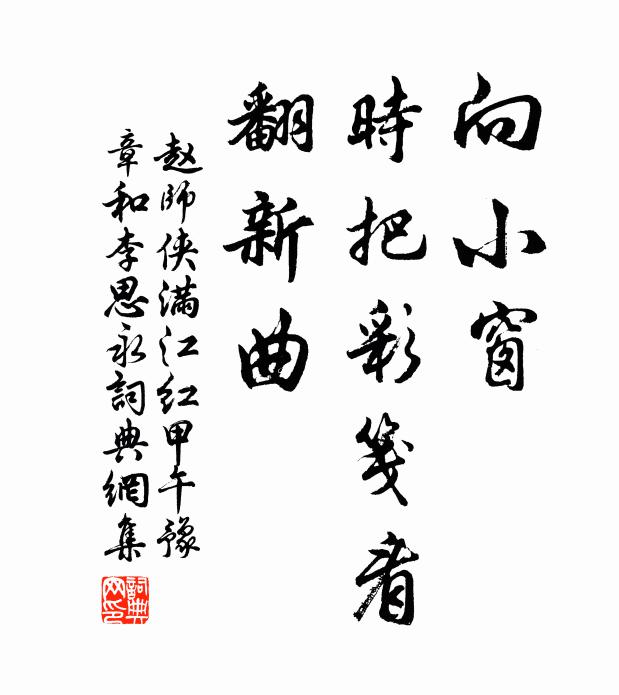 向小窗
時把彩箋看
翻新曲
赵師侠满江红甲午豫
章和李思永詞典網集
詞典網印